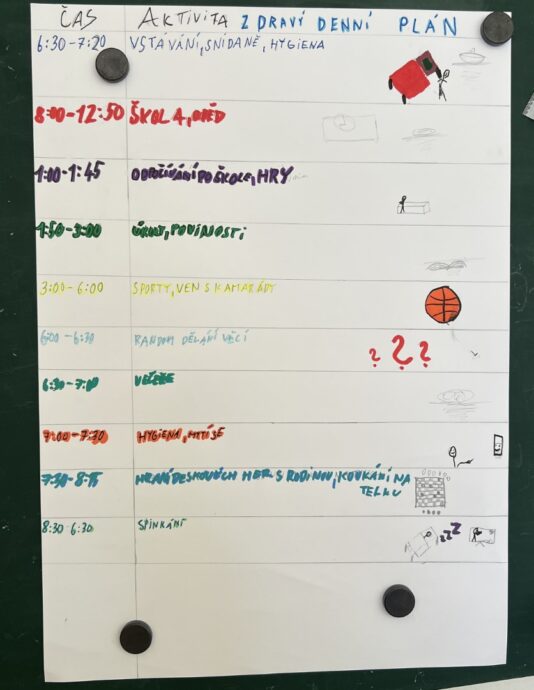 ČAS AKTIVITA ZDRAVÍ DENNÍ PLÁN
6:30-7:20 VSTÁVÁNÍ, SNÍDANĚ, HYGIENA
8:00-12:50 ŠKOLA, OBĚD
1:00-1:45 ODPOČÍVÁNÍ PO ŠKOLE, HRY
1:50-3:00 ÚKOLY, POVINOSTI
3:00-6:00 SPORTY, VEN S KAMARÁDY
6:00-6:30 RANDOM DĚLÁNÍ VĚCÍ
? ? ?
6:30-7:00 VEČEŘE
7:00-7:30 HYGIENA, MYTÍ SE
7:30-8:15 HRANÍ DESKOVÝCH HER S RODINOU, KOUKÁNÍ NA
TELKU
8:30-6:30 SPINKÁNÍ
ZZZ